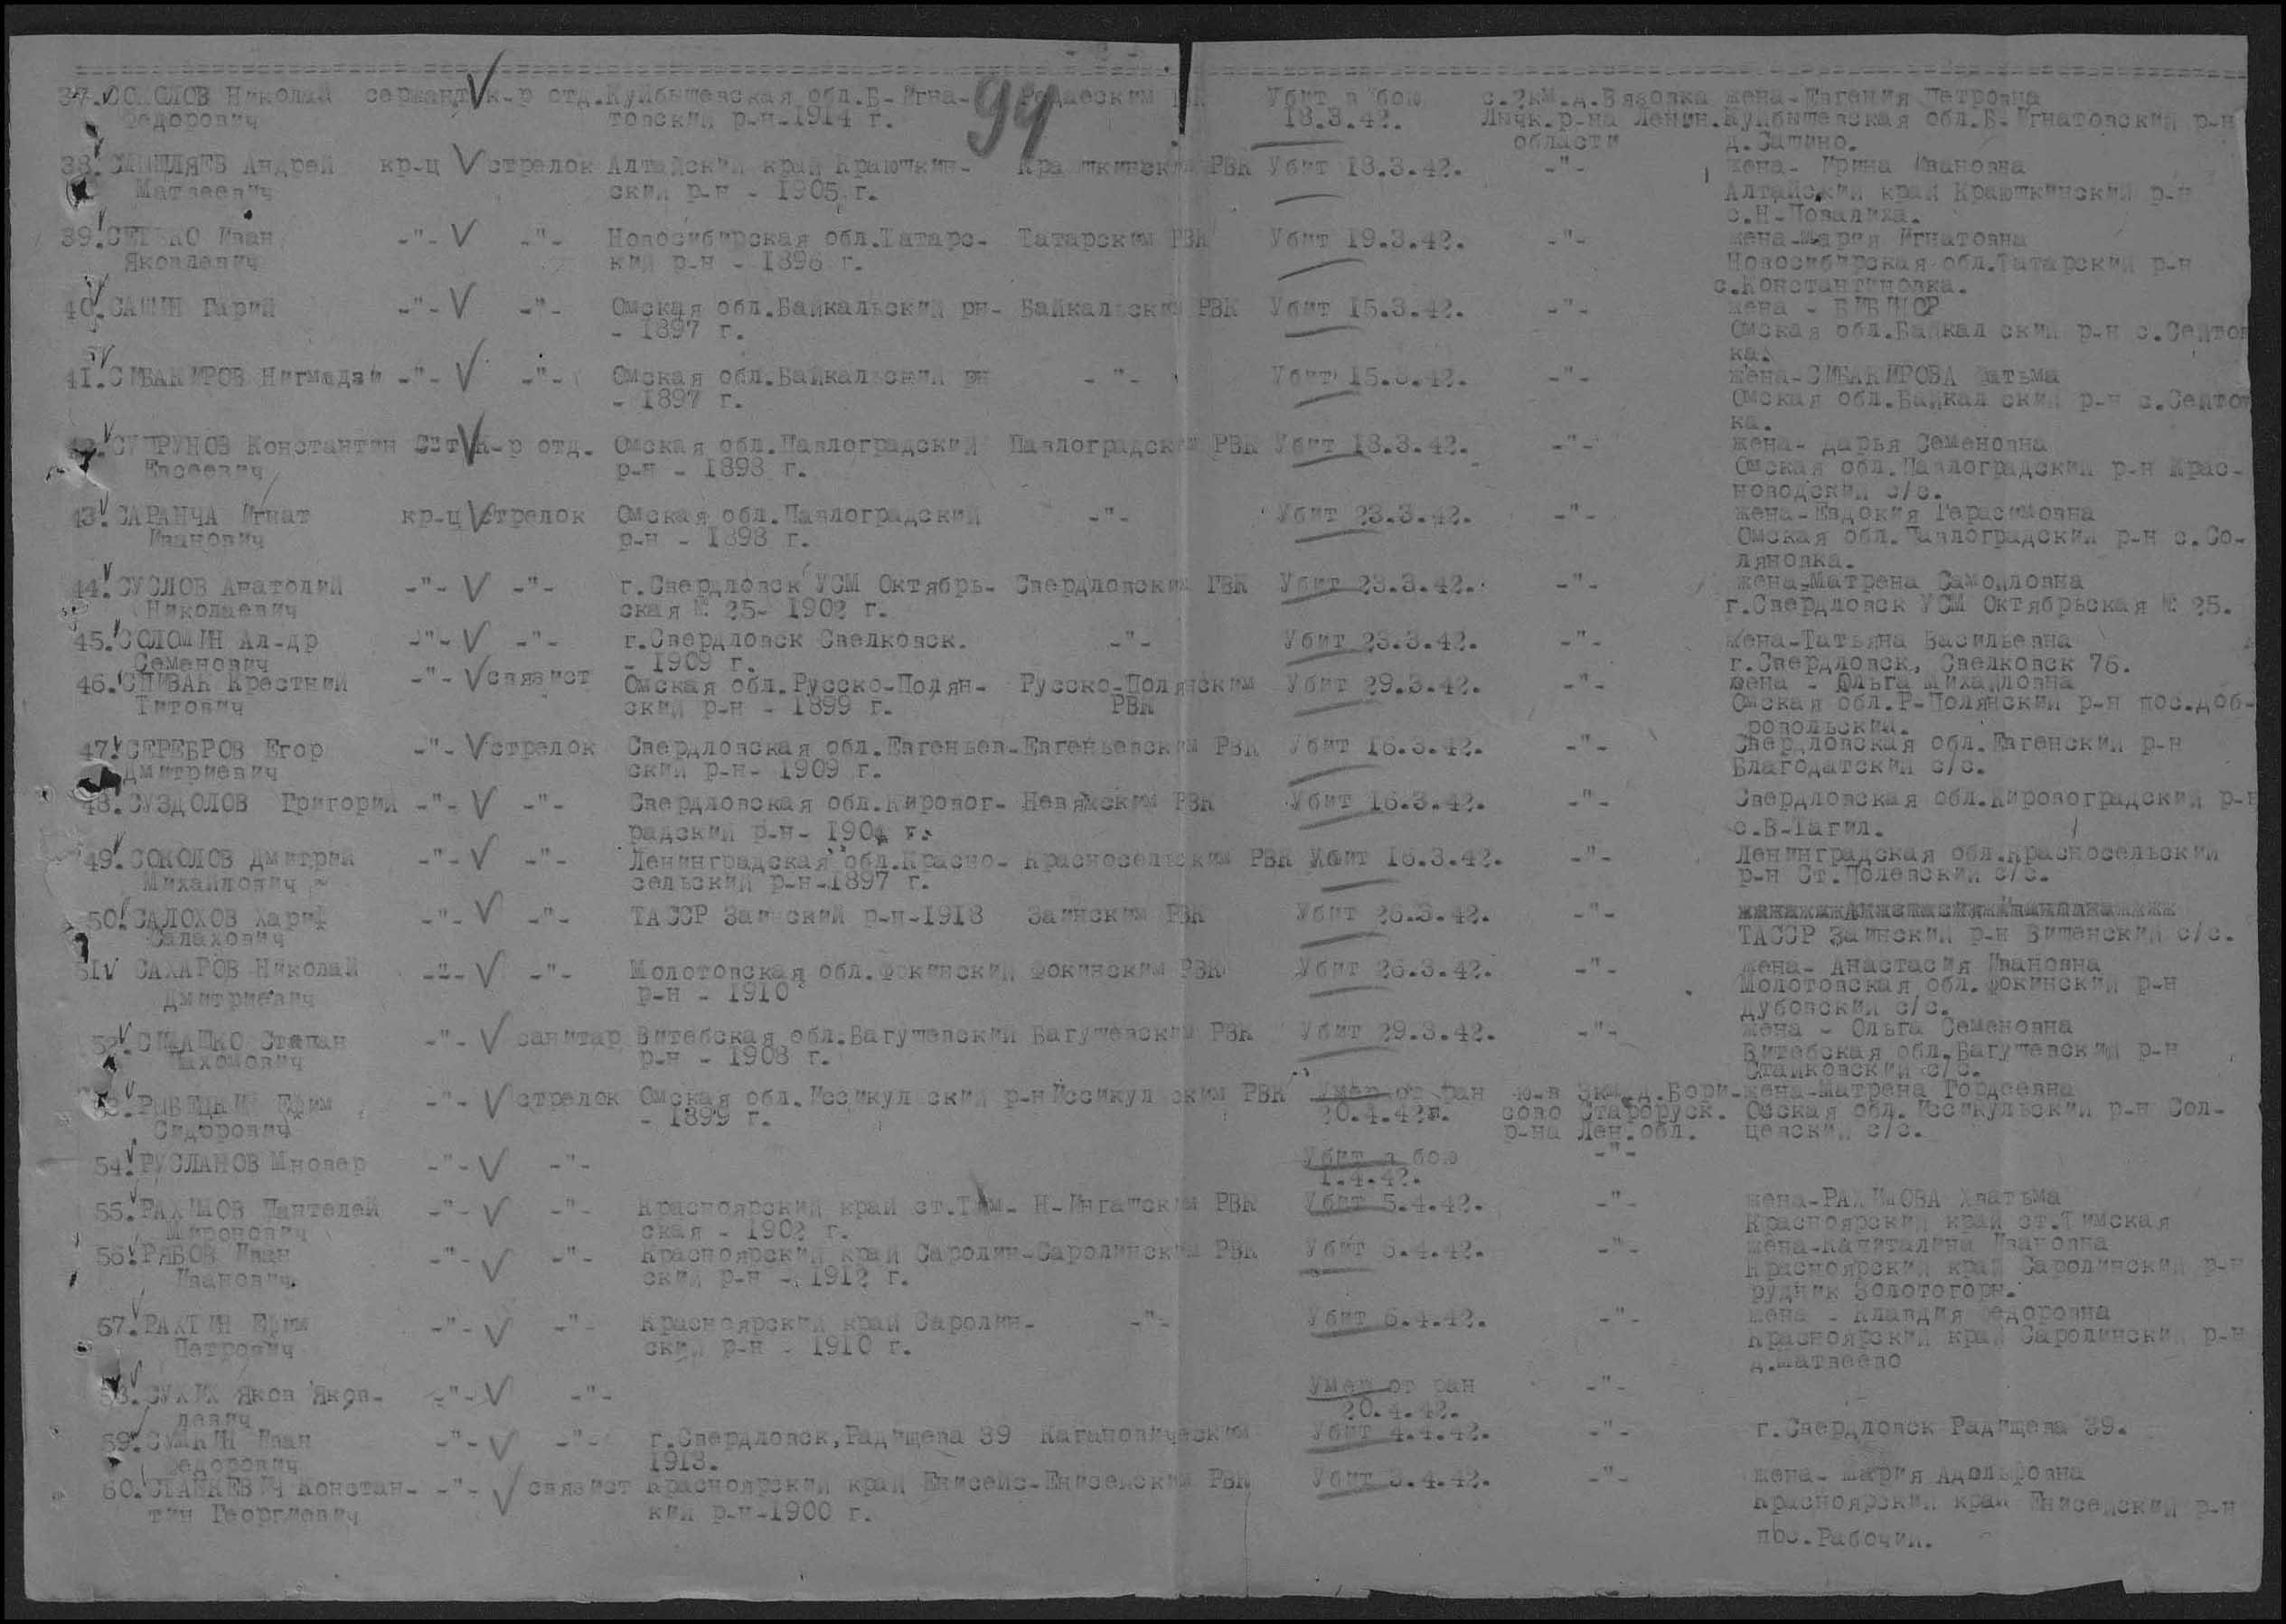 94
37. СОКОЛОВ Николай сержант к-р отд. Куйбышевская обл.Б-Игна- РВК Убит в бою с.2км.д.Вязовка жена-Евгения Петровна
Федорович товский р-н-1914 г. 18.3.42. Лычк.р-на Ленин. Куйбышевская обл.Б-Игнатовский р-н
области д.Сашино.
38. СМЫШЛЯЕВ Андрей кр-ц стрелок Алтайский край Краюшкин- Краюшкинским РВК Убит 18.3.42. -"- жена- Ирина Ивановна
Матвеевич ский р-н - 1905 г. Алтайский край Краюшкинский р-н
с.Н-Повалиха.
39. Иван -"- -"- Новосибирская обл.Татарс- Татарским РВК Убит 19.3.42. -"- жена-Мария Игнатовна
Яковлевич кий р-н - 1896 г. Новосибирская обл.Татарский р-н
с.Константиновка.
40. САШИН Гарий -"- -"- Омская обл.Байкальский рн- Байкальским РВК Убит 15.3.42. -"- жена -
- 1897 г. Омская обл.Байкал ский р-н с.Сейтов
ка.
41. СИБАКИРОВ Нигмадзи -"- -"- Омская обл.Байкальский рн -"- Убит 15.3.42. -"- жена-СИБАКИРОВА Фатьма
- 1897 г. Омская обл.Байкал ский р-н с.Сейтов
ка.
42. СУПРУНОВ Константин к-р отд. Омская обл.Павлоградский Павлоградским РВК Убит 18.3.42. -"- жена- Дарья Семеновна
Евсеевич р-н - 1898 г. Омская обл.Павлоградский р-н Крас-
новодский с/с.
43. САРАНЧА Игнат кр-ц стрелок Омская обл.Павлоградский -"- Убит 23.3.42. -"- жена-Евдокия Герасимовна
Иванович р-н - 1898 г. Омская обл.Павлоградский р-н с.Со-
ляновка.
44. СУСЛОВ Анатолий -"- -"- г.Свердловск УСМ Октябрь- Свердловским РВК Убит 23.3.42. -"- жена-Матрена Самойловна
Николаевич ская № 25- 1902 г. г.Свердловск УСМ Октябрьская № 25.
45. СОЛОМИН Ал-др -"- -"- г.Свердловск Свелковск. -"- Убит 23.3.42. -"- жена-Татьяна Васильевна
Семенович - 1909 г. г.Свердловск, Свелковск 76.
46. СПИВАК Крестний -"- связист Омская обл.Русско-Полян- Русско-Полянским Убит 29.3.42. -"- жена - Ольга Михайловна
Титович ский р-н - 1899 г. РВК Омская обл.Р-Полянский р-н пос.Доб-
ровольский.
47. СЕРЕБРОВ Егор -"- стрелок Свердловская обл.Евгеньев- Евгеньевским РВК Убит 16.3.42. -"- Свердловская обл.Евгенский р-н
Дмитриевич ский р-н- 1909 г. Благодатский с/с.
48. СУЗДОЛОВ Григорий -"- -"- Свердловская обл.Кировог- Невямским РВК Убит 16.3.42. -"- Свердловская обл.Кировоградский р-н
радский р-н- 1904 г. с.В-Тагил.
49. СОКОЛОВ Дмитрий -"- -"- Ленинградская обл.Красно- Красносельским РВК Убит 16.3.42. -"- Ленинградская обл.Красносельский
Михайлович сельский р-н-1897 г. р-н Ст.Полевский с/с.
50. САЛОХОВ Хариф -"- -"- ТАССР Заинский р-н-1918 Заинским РВК Убит 26.3.42. -"-
Салахович ТАССР Заинский р-н Вишенский с/с.
51. САХАРОВ Николай -"- -"- Молотовская обл.Фокинский Фокинским РВК Убит 26.3.42. -"- жена- Анастасия Ивановна
Дмитриевич р-н - 1910 Молотовская обл.Фокинский р-н
Дубовский с/с.
52. СИМАШКО Степан -"- санитар Витебская обл.Вагушевский Вагушевским РВК Убит 29.3.42. -"- жена - Ольга Семеновна
Пахомович р-н - 1908 г. Витебская обл.Вагушевский р-н
Стайковский с/с.
53. РЫБЕЦКИЙ Ефим -"- стрелок Омская обл.Иссикул ский р-н Иссикул ским РВК Умер от ран ю-в 3км.д.Бори- жена-Матрена Гордеевна
Сидорович - 1899 г. 20.4.42г. сово Староруск. Омская обл. Иссикульский р-н Сол-
р-на Лен.обл. цевский с/с.
54. РУСЛАНОВ Мновер -"- -"- Убит в бою -"-
1.4.42.
55. РАХИМОВ Пантелей -"- -"- Красноярский край ст.Тим- Н-Ингашским РВК Убит 5.4.42. -"- жена-РАХИМОВА Хватьма
Миронович ская - 1902 г. Красноярский край ст.Тимская
56. РЯБОВ Иван -"- -"- Красноярский край Саролин- Саролинским РВК Убит 6.4.42. -"- жена-Капиталина Ивановна
Иванович ский р-н - 1912 г. Красноярский край Саролинский р-н
рудник Золотогорн.
57. РАКТИН Ефим -"- -"- Красноярский край Саролин- -"- Убит 6.4.42. -"- жена - Клавдия Федоровна
Петрович ский р-н - 1910 г. Красноярский край Саролинский р-н
д.Матвеево
58. СУХИХ Яков Яков- -"- -"- Умер от ран -"-
левич 20.4.42.
59. СУШКИН Иван -"- -"- г.Свердловск,Радищева 39 Кагановическим Убит 4.4.42. -"- г.Свердловск Радищева 39.
Федорович 1913.
60. СТАНКЕВИЧ Констан- -"- связист Красноярский край Енисейс- Енисейским РВК Убит 3.4.42. -"- жена- Мария Адольфовна
тин Георгиевич кий р-н-1900 г. Красноярский край Енисейский р-н
пос.Рабочий.